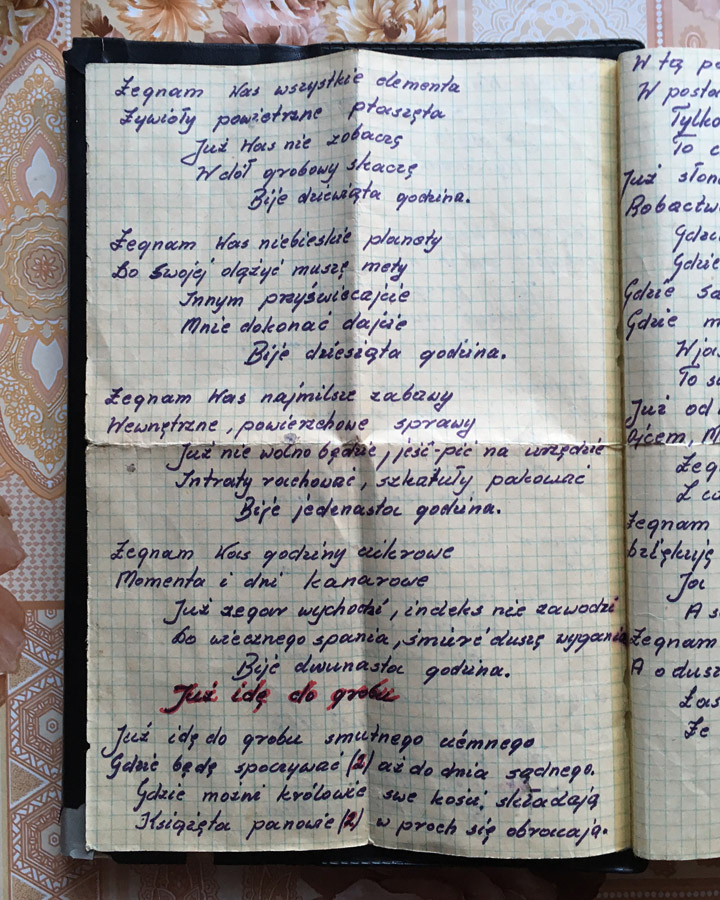 Żegnam Was wszystkie elementa
Żywioły powietrzne ptaszęta
Już Was nie zobaczę
W dół grobowy skaczę
Bije dziewiąta godzina.
Żegnam Was niebieskie planety
Do swojej dążyć muszę mety
Innym przyświecajcie
Mnie dokonać dajcie
Bije dziesiąta godzina.
Żegnam Was najmilsze zabawy
Wewnętrzne, powierzchowe sprawy
Już nie wolno będzie, jeść-pić na urzędzie
Intraty rachować, szkatuły pakować
Bije jedenasta godzina.
Żegnam Was godziny cukrowe
Momenta i dni kanarowe
Już zegar wychodzi, indeks nie zawodzi
Do wiecznego spania, śmierć duszę wygania
Bije dwunasta godzina.
Już idę do grobu
Już idę do grobu smutnego ciemnego
Gdzie będę spoczywać (2) aż do dnia sądnego.
Gdzie możni królowie swe kości składają
Książęta panowie (2) w proch się obracają.
W tą
W
Tylko
To
Już
Robactw
Gdzie
Gdzie
Gdzie
Gdzie
W
To
Już od
Ojcem,
Żeg
Z
Żegnam
Dziękuję
A
Żegnam
A o dusz
Że